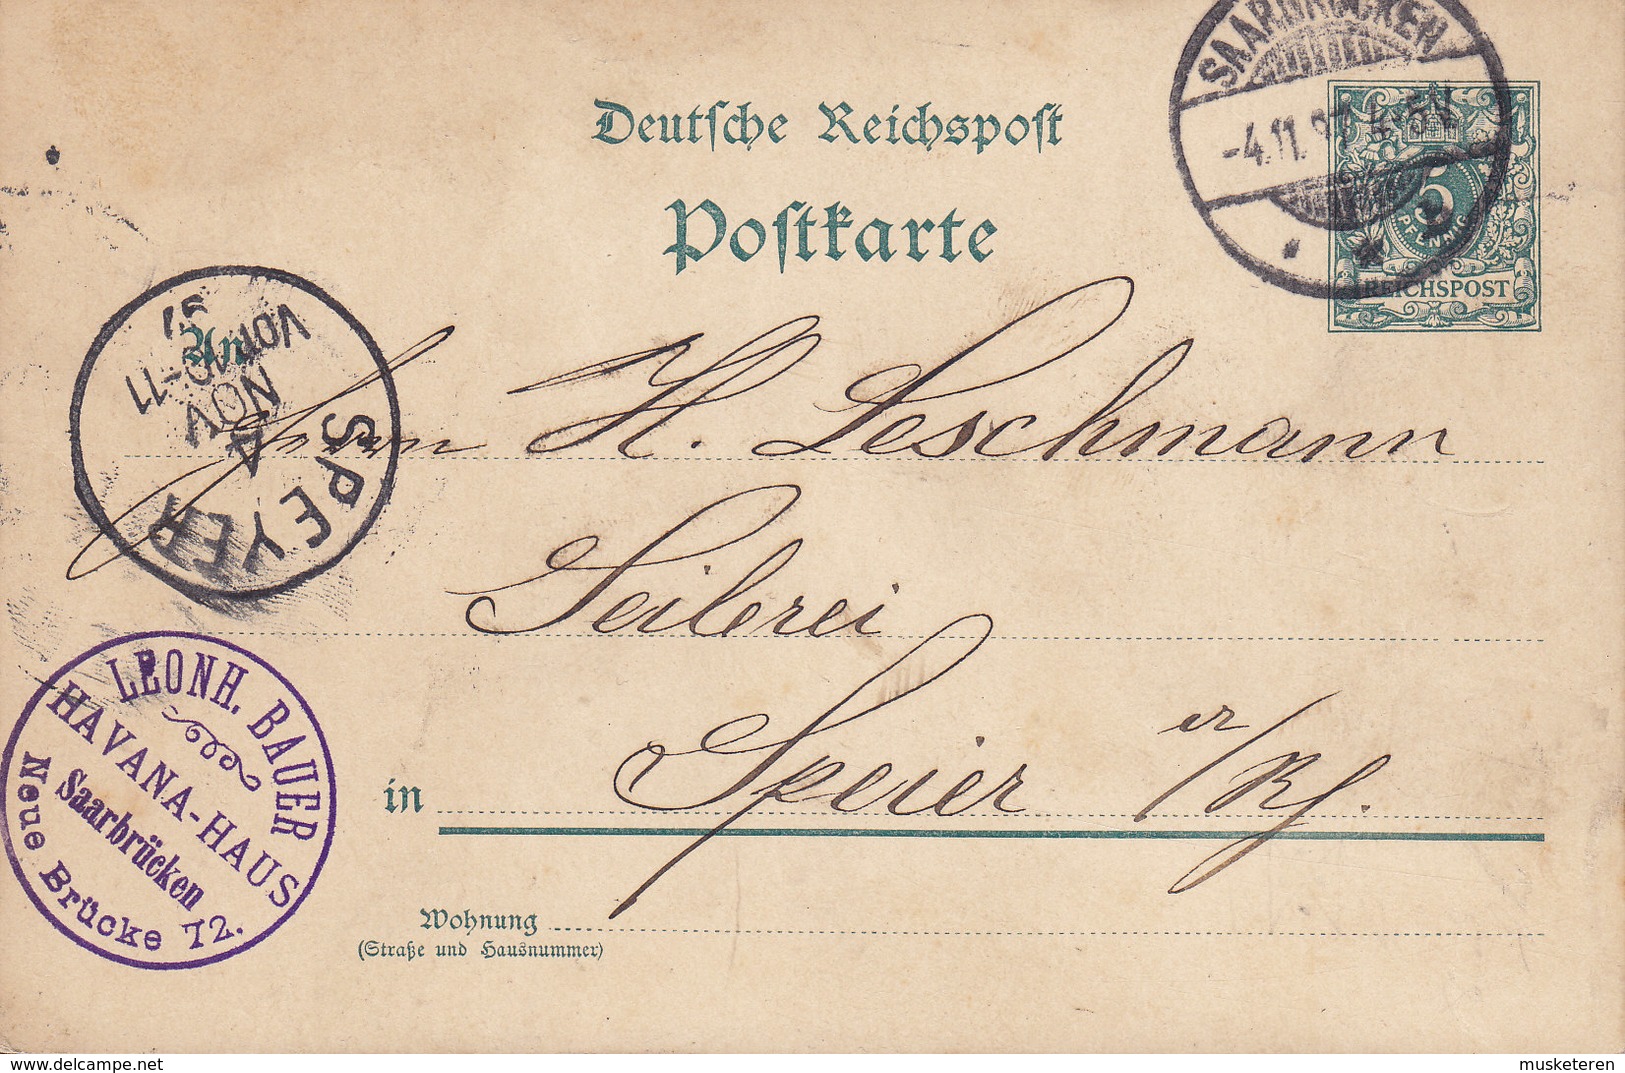 SAARBRÜCKEN
-4.11.97. 4-5N
5
PFENNIG
REICHSPOST
Deutsche Reichspost
Postkarte
An
SPEYER
4
NOV
VOR 10-11
97
Herrn H. Leschmann
Seilerei
in Speier a/Rh.
LEONH. BAUER
HAVANA-HAUS
Saarbrücken
Neue Brücke 72.
Wohnung
(Straße und Hausnummer)
musketeren
delcampe.net